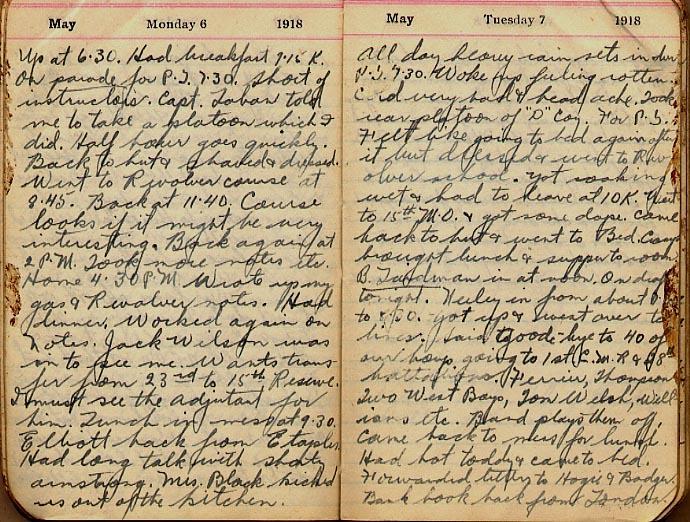 May Monday 6 1918
Up at 6.30. Had breakfast 7.15 K.
On parade for P.T. 7.30. Short of
instructors. Capt. told
me to take a platoon which I
did. Half hour goes quickly.
Back to hut & shaved & dressed.
Went to Revolver course at
8.45. Back at 11.40. Course
looks if it might be very
interesting. Back again at
2 P.M. Took more notes etc.
Home 4.30 P.M. Wrote up my
gas & Revolver notes. Had
dinner. Worked again on
notes. Jack Wilson was
in to see me. Wants trans
fer from 23rd to 15th Reserve.
I must see the adjutant for
him. Lunch in mess at 9.30.
Elliott back from Etaples.
Had long talk with Shorty
Armstrong. Mrs. Black kicked
us out of the kitchen.
May Tuesday 7 1918
All day heavy rain sets in
P.T. 7.30. Woke up feeling rotten.
Cold very bad & head ache. Took
rear platoon of "D" Coy. For P.T.
Felt like going to bed again after
it but dressed & went to Rev
olver school. Got soaking
wet & had to leave at 10 K. Went
to 15th M.O. & got some dope. Came
back to hut & went to Bed.
brought lunch & supper to room.
B. in at noon. On draft
tonight. in from about
to 8.30. Got up & went over to
lines. Said goode-bye to 40 of
our boys going to 1st C.M.R. &
battalions. Ferrier, Thompson
Two West Boys, Tom Welsh, Will
iams etc. Band plays them off.
Came back to mess for lunch.
Had hot toddy & came to bed.
Forwarded letters to Hogie & Badger.
Bank book back from London.